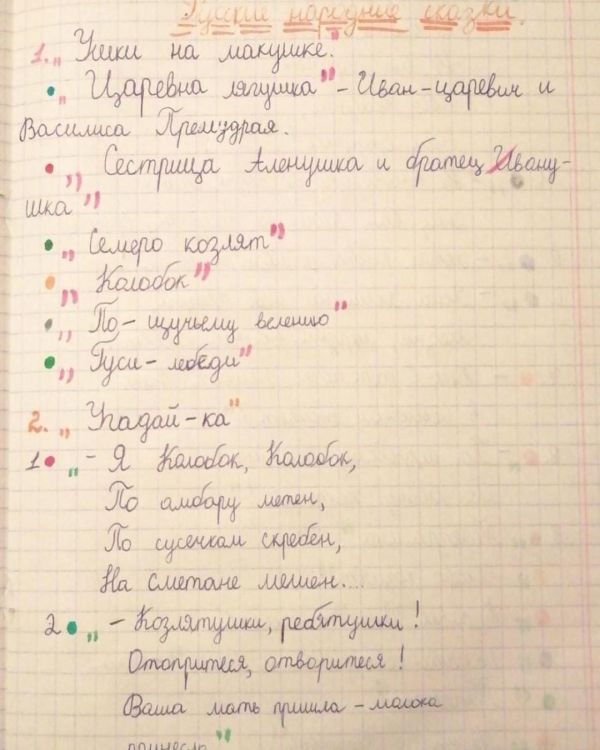 Русские народные сказки.
1. „Ушки на макушке."
„Царевна лягушка" - Иван-царевич и
Василиса Премудрая.
„Сестрица Аленушка и братец Ивану-
шка"
„Семеро козлят"
„Колобок"
„По-щучьему велению"
„Гуси-лебеди"
2. „Угадай-ка"
1 „ - Я Колобок, Колобок,
По амбару метен,
По сусечкам скребен,
На сметане мешен....
2 „ - Козлятушки, ребятушки!
Отопритеся, отворитеся!
Ваша мать пришла - молока
принесла"